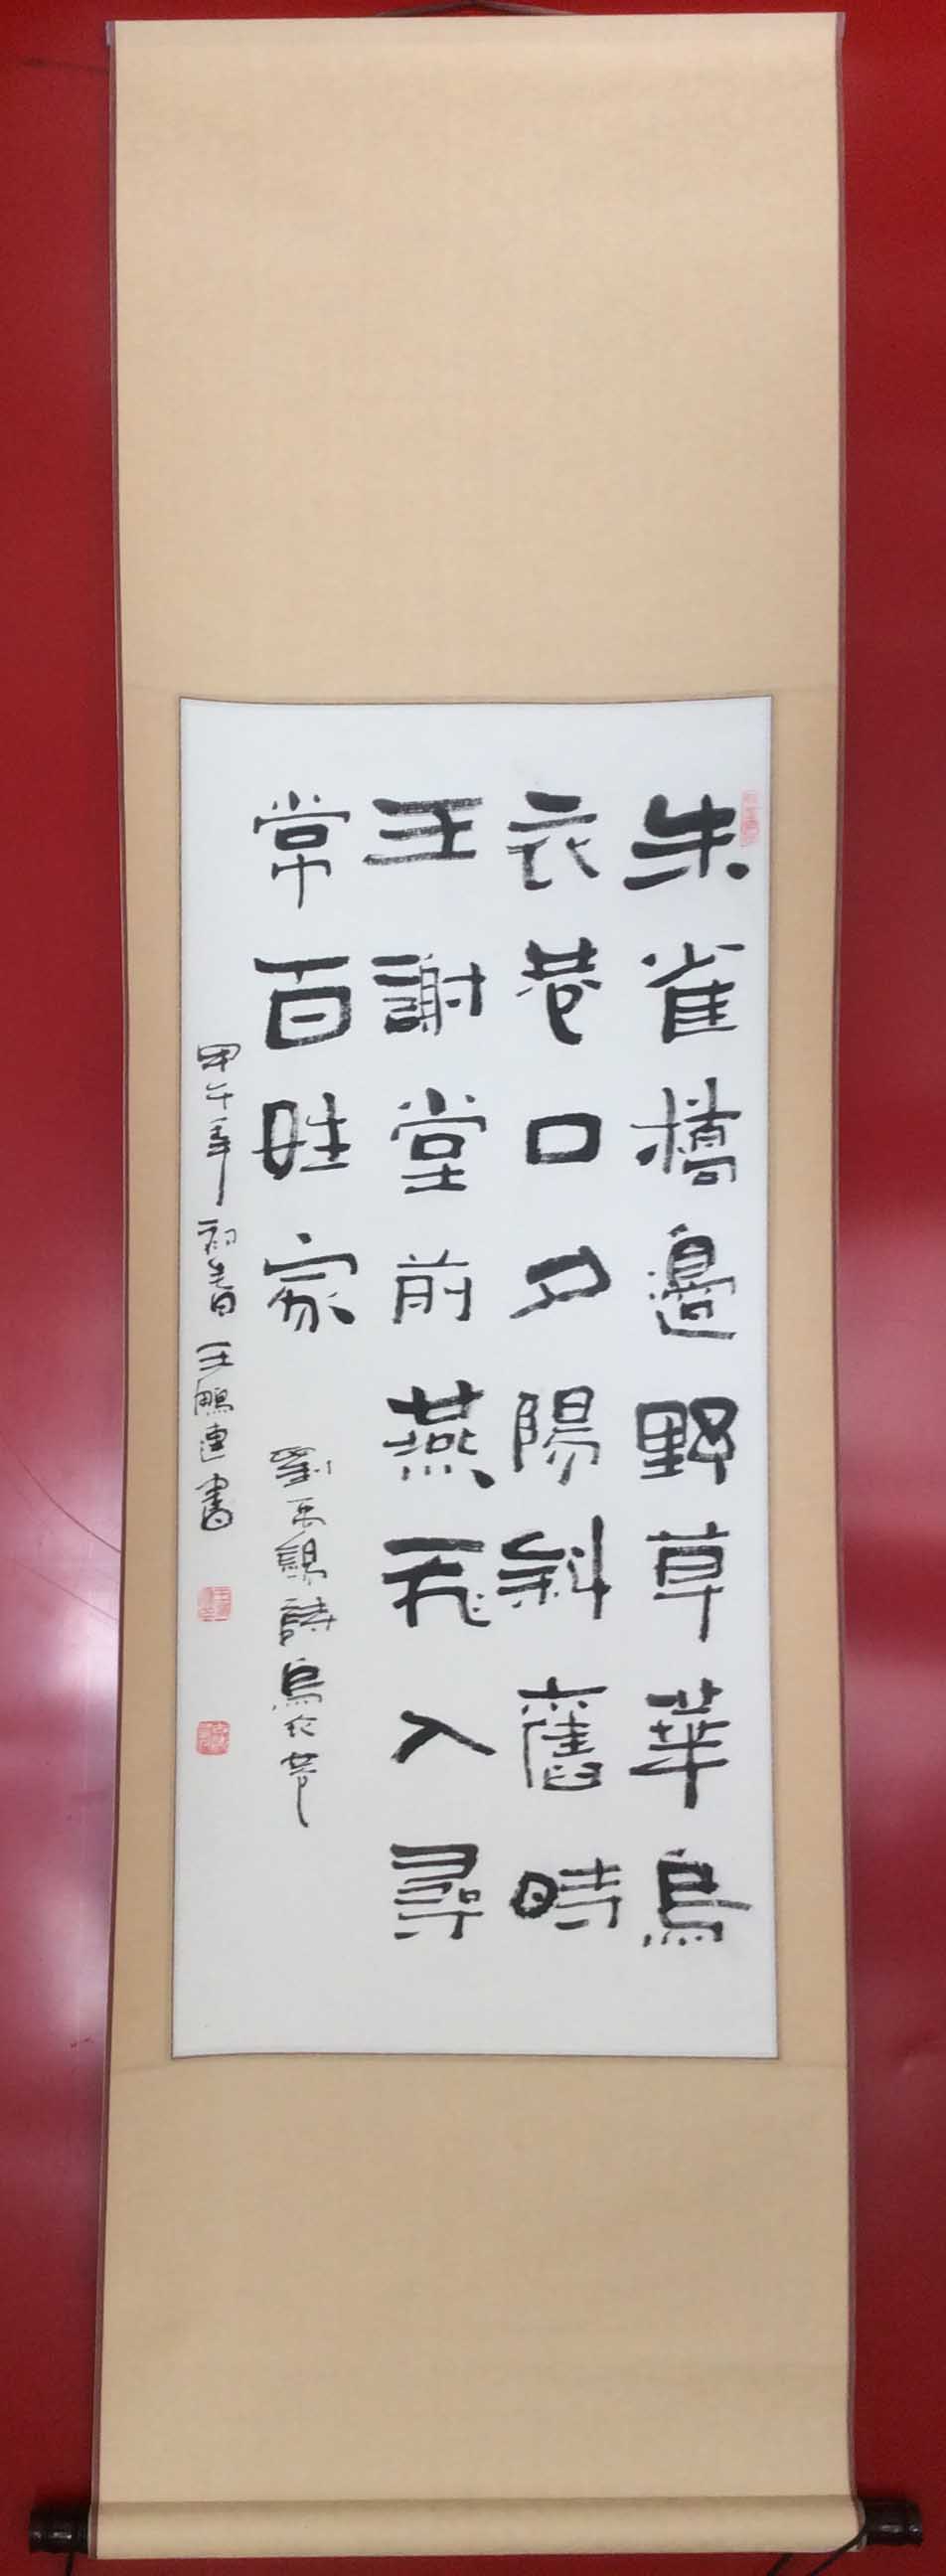 朱雀橋邊野草華烏
衣巷口夕陽斜舊時
王謝堂前燕飛入尋
常百姓家
劉禹錫詩烏衣巷
甲午年初春王鵬連書